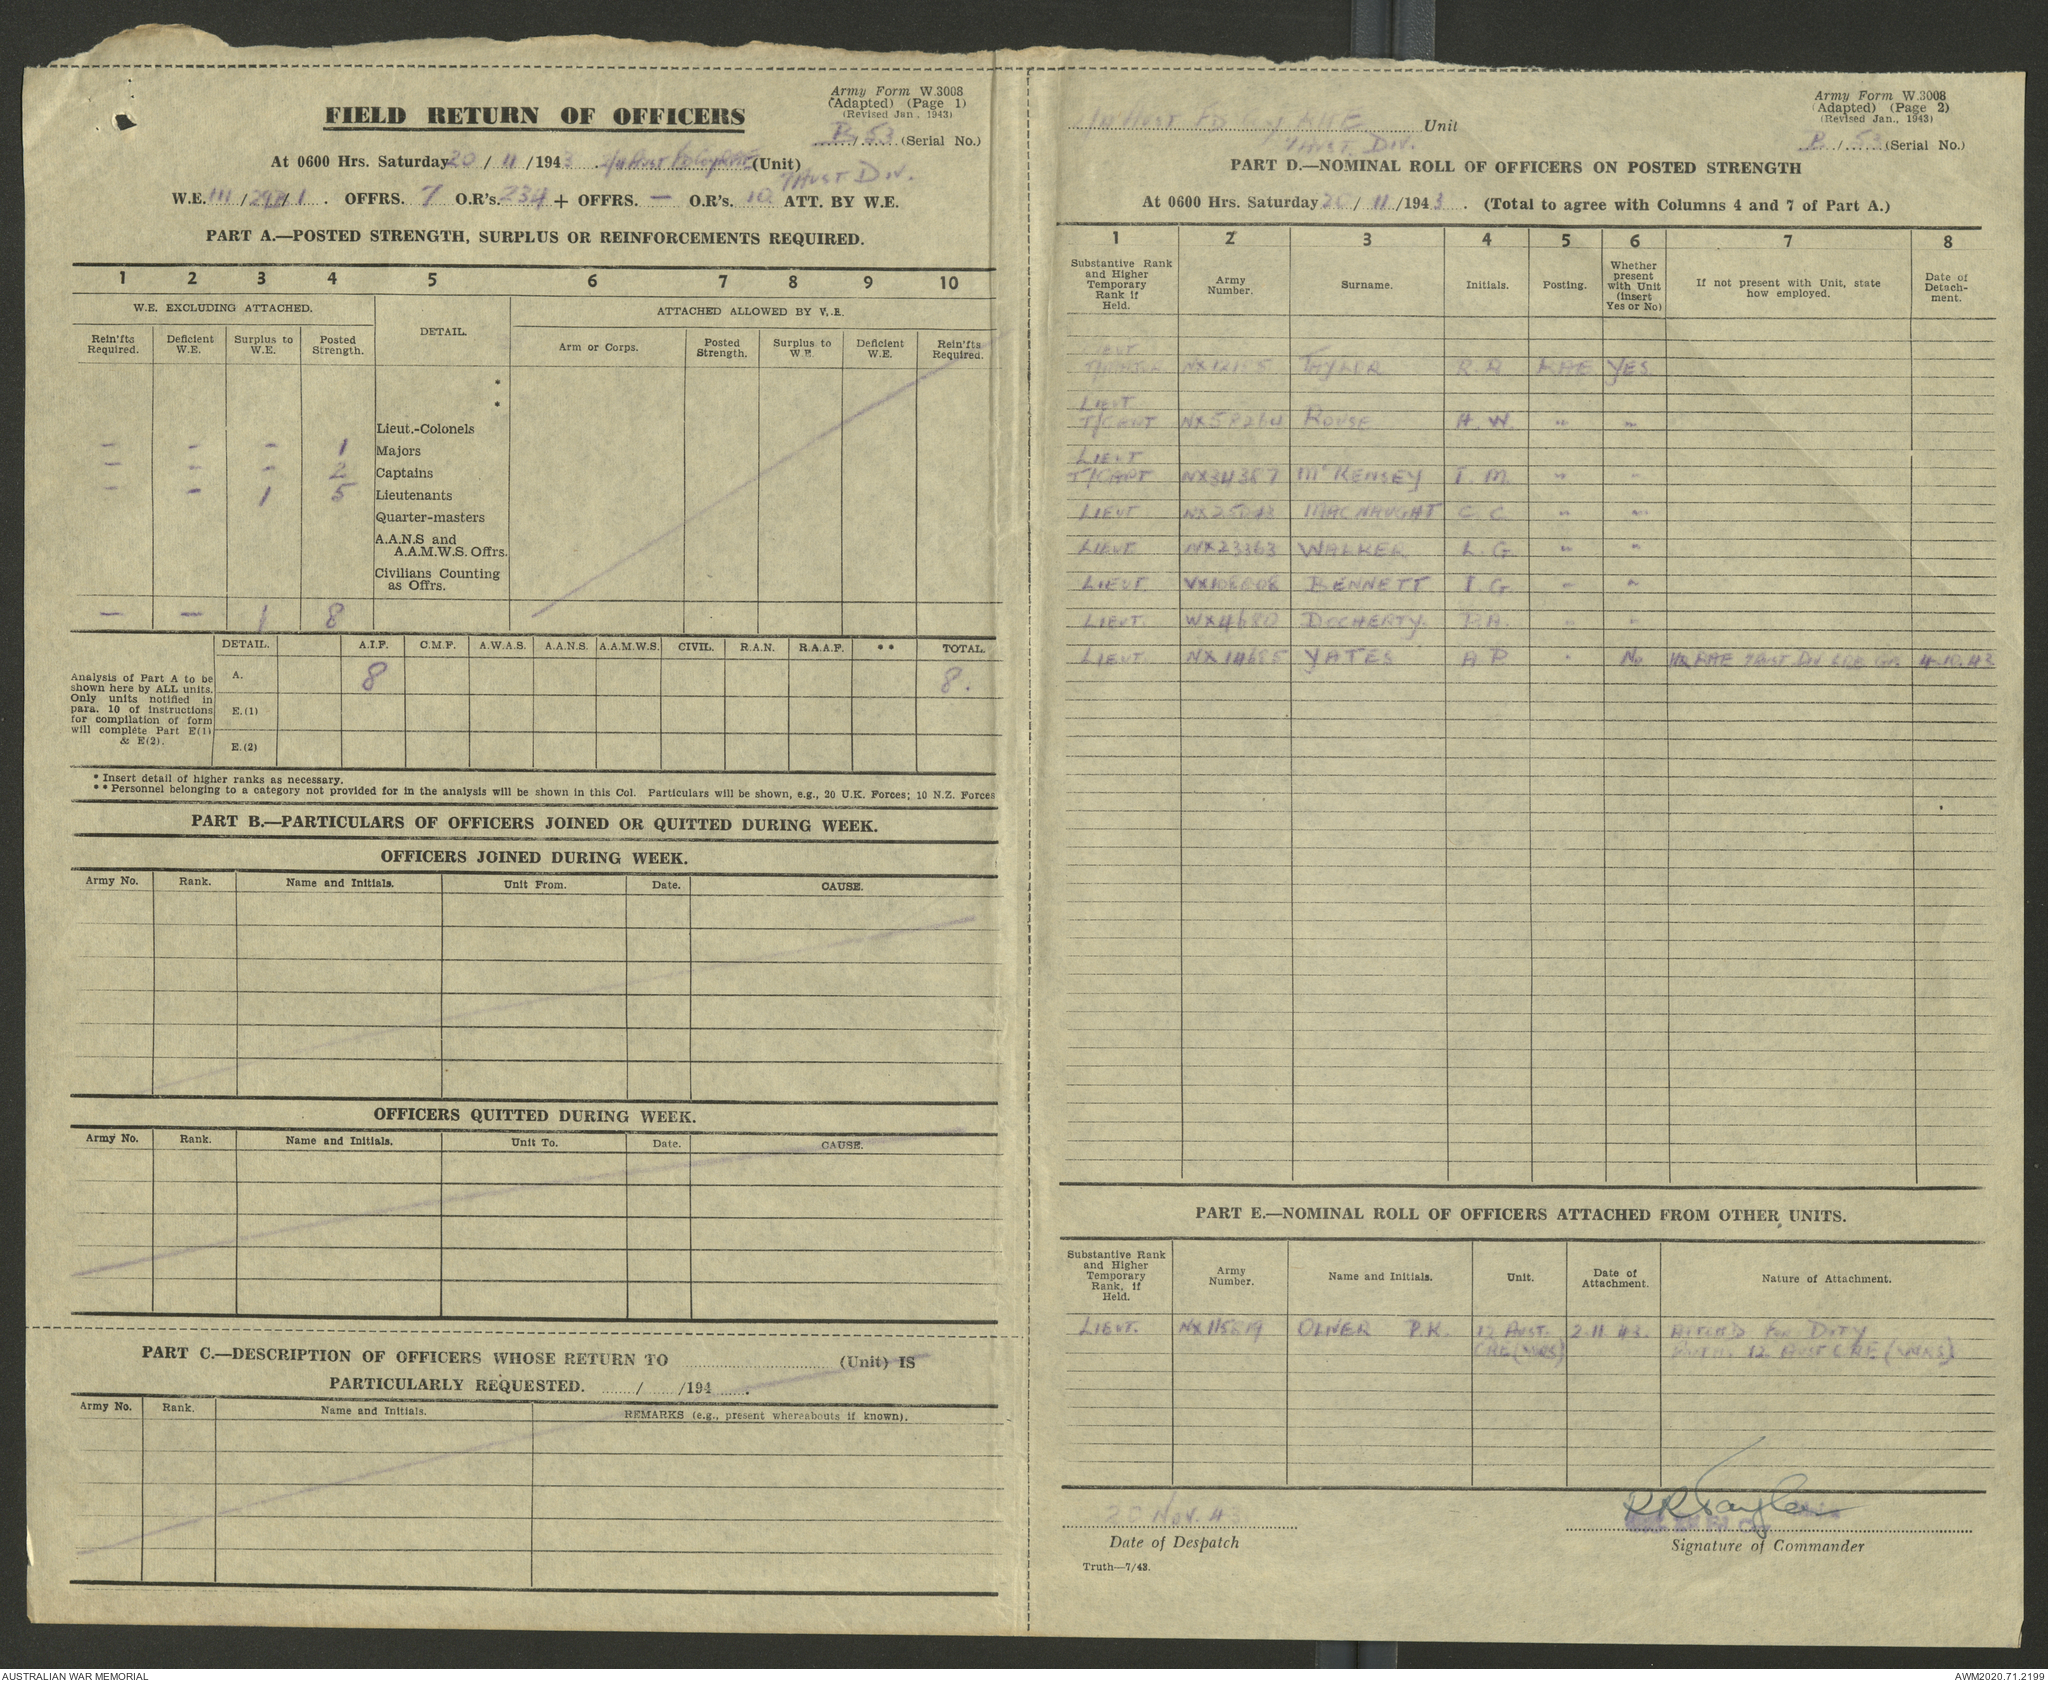 Army Form W.3008
(Adapted) (Page 1)
(Revised Jan., 1943)
FIELD RETURN OF OFFICERS
B / 53 (Serial No.)
At 0600 Hrs. Saturday 20 / 11 /1943 2/4 Aust Fd Coy RAE (Unit)
7 Aust Div.
W.E. III / / 1 . OFFRS. 7 O.R's. 234 + OFFRS. — O.R's. 10 ATT. BY W.E.
PART A.—POSTED STRENGTH, SURPLUS OR REINFORCEMENTS REQUIRED.
1 2 3 4 5 6 7 8 9 10
W.E. EXCLUDING ATTACHED. DETAIL. ATTACHED ALLOWED BY W.E.
Rein'fts Required. Deficient W.E. Surplus to W.E. Posted Strength. Arm or Corps. Posted Strength. Surplus to W.E. Deficient W.E. Rein'fts Required.
*
*
Lieut.-Colonels
— — — 1 Majors
— — — 2 Captains
— — 1 5 Lieutenants
Quarter-masters
A.A.N.S and
A.A.M.W.S. Offrs.
Civilians Counting
as Offrs.
— — 1 8
DETAIL. A.I.F. C.M.F. A.W.A.S. A.A.N.S. A.A.M.W.S. CIVIL. R.A.N. R.A.A.F. ** TOTAL.
Analysis of Part A to be
shown here by ALL units.
Only units notified in
para. 10 of instructions
for compilation of form
will complete Part E(1)
& E(2).
A. 8 8.
E.(1)
E.(2)
* Insert detail of higher ranks as necessary.
** Personnel belonging to a category not provided for in the analysis will be shown in this Col. Particulars will be shown, e.g., 20 U.K. Forces; 10 N.Z. Forces
PART B.—PARTICULARS OF OFFICERS JOINED OR QUITTED DURING WEEK.
OFFICERS JOINED DURING WEEK.
Army No. Rank. Name and Initials. Unit From. Date. CAUSE.
OFFICERS QUITTED DURING WEEK.
Army No. Rank. Name and Initials. Unit To. Date. CAUSE.
PART C.—DESCRIPTION OF OFFICERS WHOSE RETURN TO ........ (Unit) IS
PARTICULARLY REQUESTED. ....../....../194 ......
Army No. Rank. Name and Initials. REMARKS (e.g., present whereabouts if known).
Army Form W.3008
(Adapted) (Page 2)
(Revised Jan., 1943)
2/4 Aust Fd Coy RAE Unit
7 Aust. Div.
B / 53 (Serial No.)
PART D.—NOMINAL ROLL OF OFFICERS ON POSTED STRENGTH
At 0600 Hrs. Saturday 20 / 11 /1943 . (Total to agree with Columns 4 and 7 of Part A.)
1 2 3 4 5 6 7 8
Substantive Rank and Higher Temporary Rank if Held. Army Number. Surname. Initials. Posting. Whether present with Unit (insert Yes or No) If not present with Unit, state how employed. Date of Detachment.
TAYLOR R.R. RAE YES
LIEUT
T/CAPT NX58264 ROUSE H.W. " "
LIEUT
T/CAPT NX34387 McKENSEY I.M. " "
LIEUT MACNAUGHT C.C. " "
LIEUT NX23363 WALKER L.G. " "
LIEUT BENNETT I.G. " "
LIEUT. WX4680 DOCHERTY. " "
LIEUT. NX14685 YATES A P " No HQ RAE 7 Aust. Div 4.10.43
PART E.—NOMINAL ROLL OF OFFICERS ATTACHED FROM OTHER UNITS.
Substantive Rank and Higher Temporary Rank, if Held. Army Number. Name and Initials. Unit. Date of Attachment. Nature of Attachment.
LIEUT. NX115819 OLIVER P.K. 12 Aust. 2.11.43. ATTCH'D FOR DUTY
CRE (WKS) WITH 12 AUST CRE (WKS)
20 Nov. 43
Date of Despatch
RRTaylor
Signature of Commander
Truth—7/43.
AUSTRALIAN WAR MEMORIAL
AWM2020.71.2199